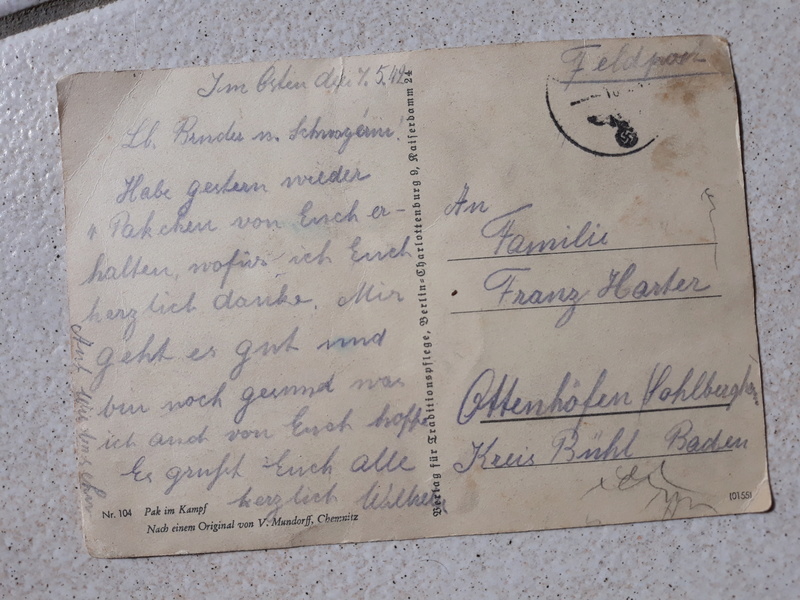 Im Osten den 7.5.42
Lb. Bruder u. Schwägerin!
Habe gestern wieder
Päkchen von Euch er-
halten, wofür ich Euch
herzlich danke. Mir
geht es gut und
bin noch gesund was
ich auch von Euch hoffe
Es grüßt Euch alle
herzlich Wilhelm
Auf Wiedersehen
Nr. 104 Pak im Kampf
Nach einem Original von V. Mundorff, Chemnitz
Verlag für Traditionspflege, Berlin-Charlottenburg 9, Kaiserdamm 24
Feldpost
An
Familie
Franz Harter
Ottenhöfen
Kreis Bühl Baden